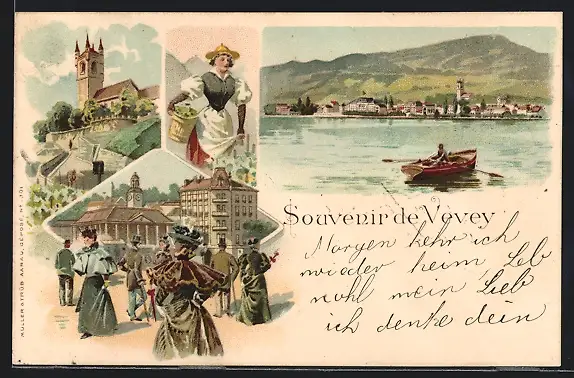 Souvenir de Vevey
Morgen kehr ich
wieder heim, Leb
wohl mein Lieb
ich denke dein
MÜLLER & TRÜB AARAU, DÉPOSÉ. Nr.